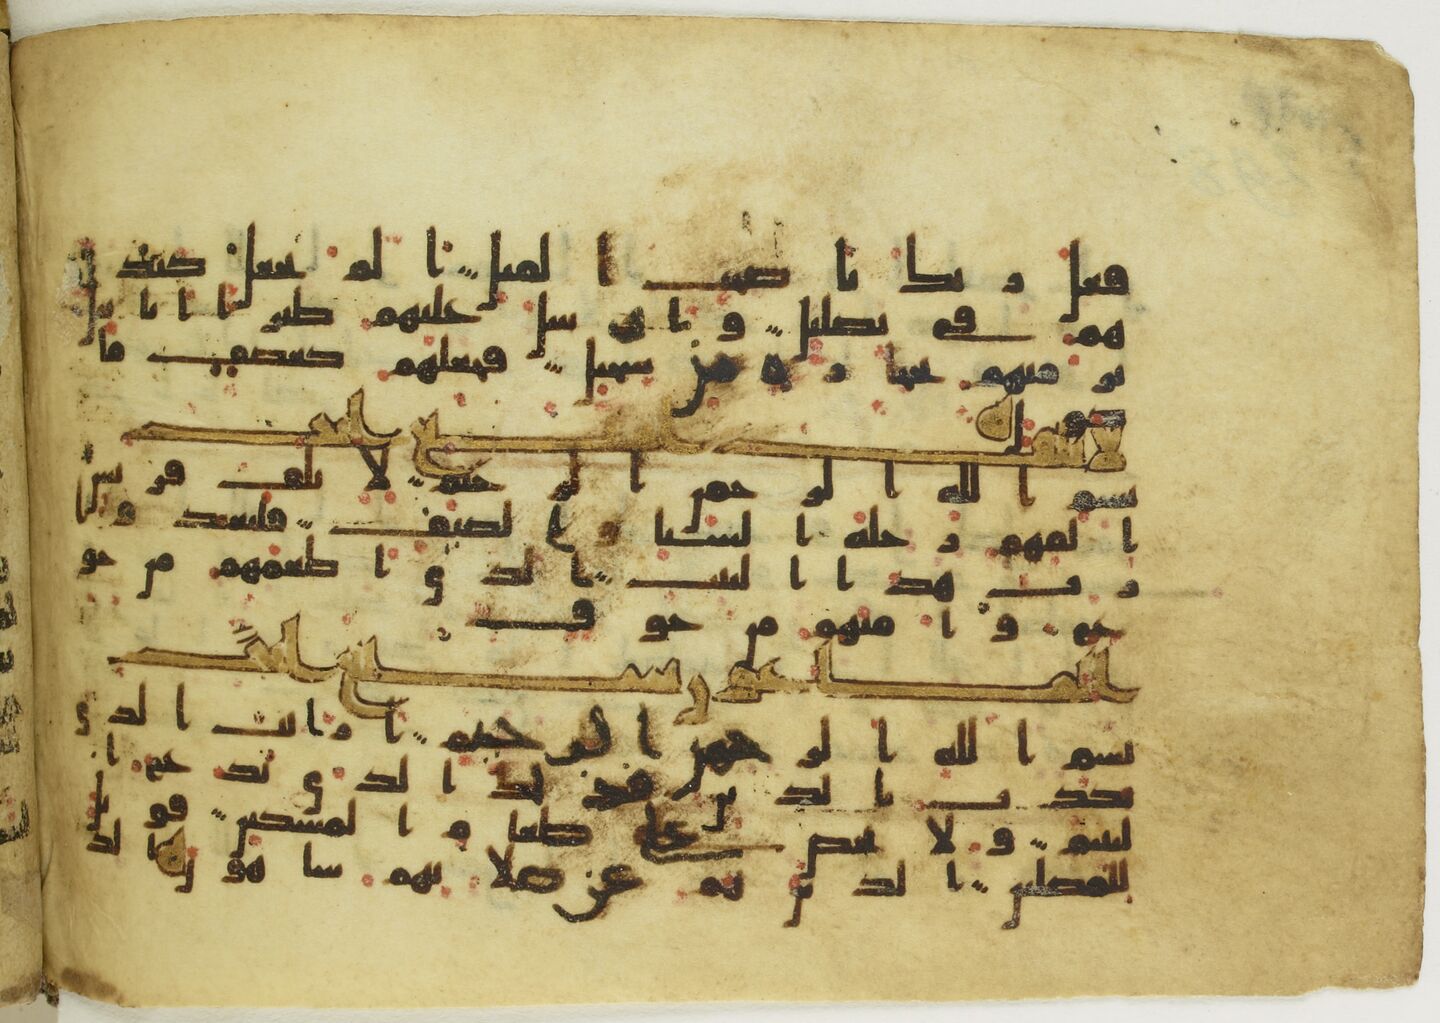 فعل ربك باصحب الفيل الم يجعل كيد
هم في تضليل وارسل عليهم طيرا ابابيل
ترميهم بحجارة من سجيل فجعلهم كعصف ما
كول
بسم الله الرحمن الرحيم لايلف قريش
الفهم رحلة الشتا والصيف فليعبدوا
رب هذا البيت الذي اطعمهم من جو
ع وامنهم من خوف
الماعون
بسم الله الرحمن الرحيم ارايت الذي
يكذب بالدين فذلك الذي يدع ا
ليتيم ولا يحض على طعام المسكين فويل
للمصلين الذين هم عن صلاتهم ساهون الذ